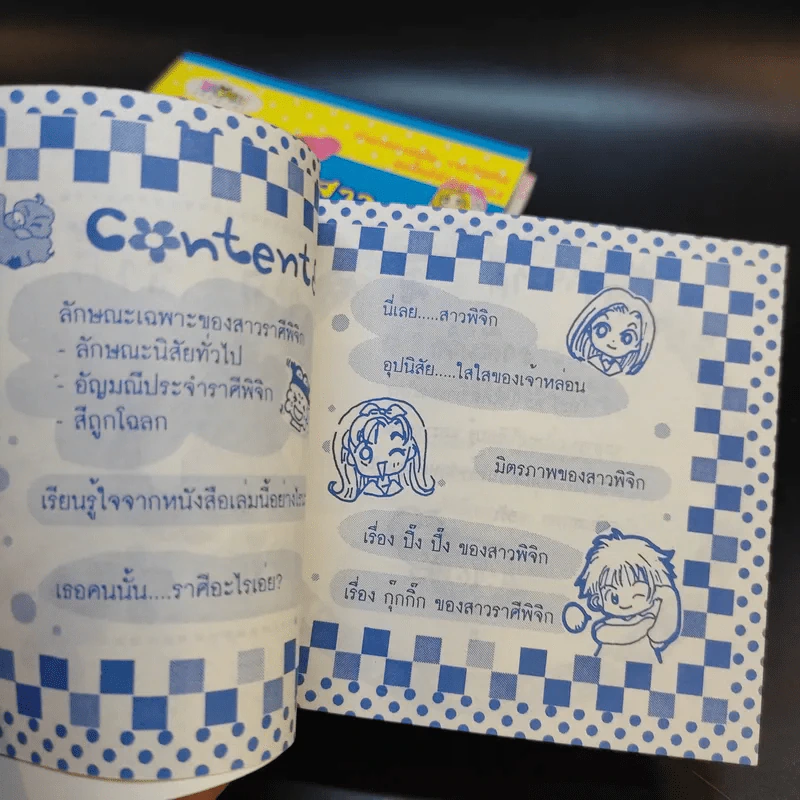 Contents
ลักษณะเฉพาะของสาวราศีพิจิก
- ลักษณะนิสัยทั่วไป
- อัญมณีประจำราศีพิจิก
- สีถูกโฉลก
เรียนรู้ใจจากหนังสือเล่มนี้อย่างไร
เธอคนนั้น....ราศีอะไรเอ่ย?
นี่เลย.....สาวพิจิก
อุปนิสัย.....ใสใสของเจ้าหล่อน
มิตรภาพของสาวพิจิก
เรื่อง ปิ๊ง ปิ๊ง ของสาวพิจิก
เรื่อง กุ๊กกิ๊ก ของสาวราศีพิจิก